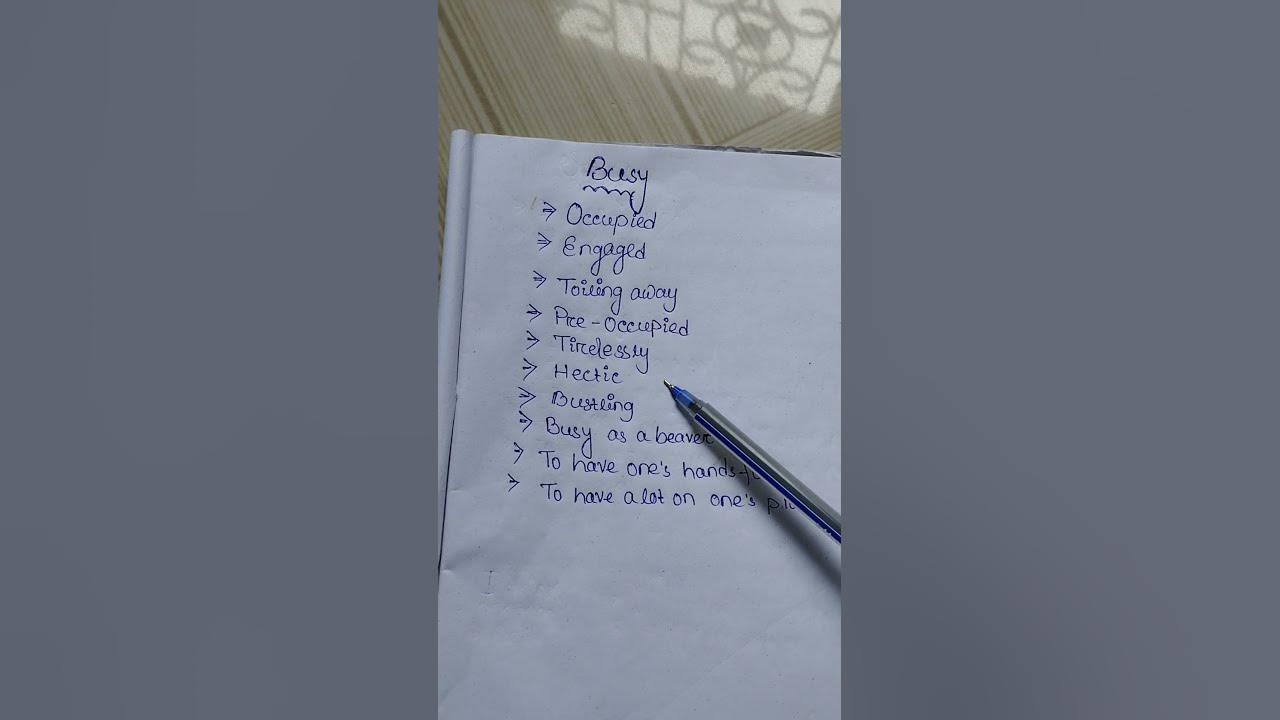 Busy
⇒ Occupied
⇒ Engaged
⇒ Toiling away
⇒ Pre-Occupied
⇒ Tirelessly
⇒ Hectic
⇒ Bustling
⇒ Busy as a beaver
⇒ To have one's hands-
⇒ To have a lot on one's